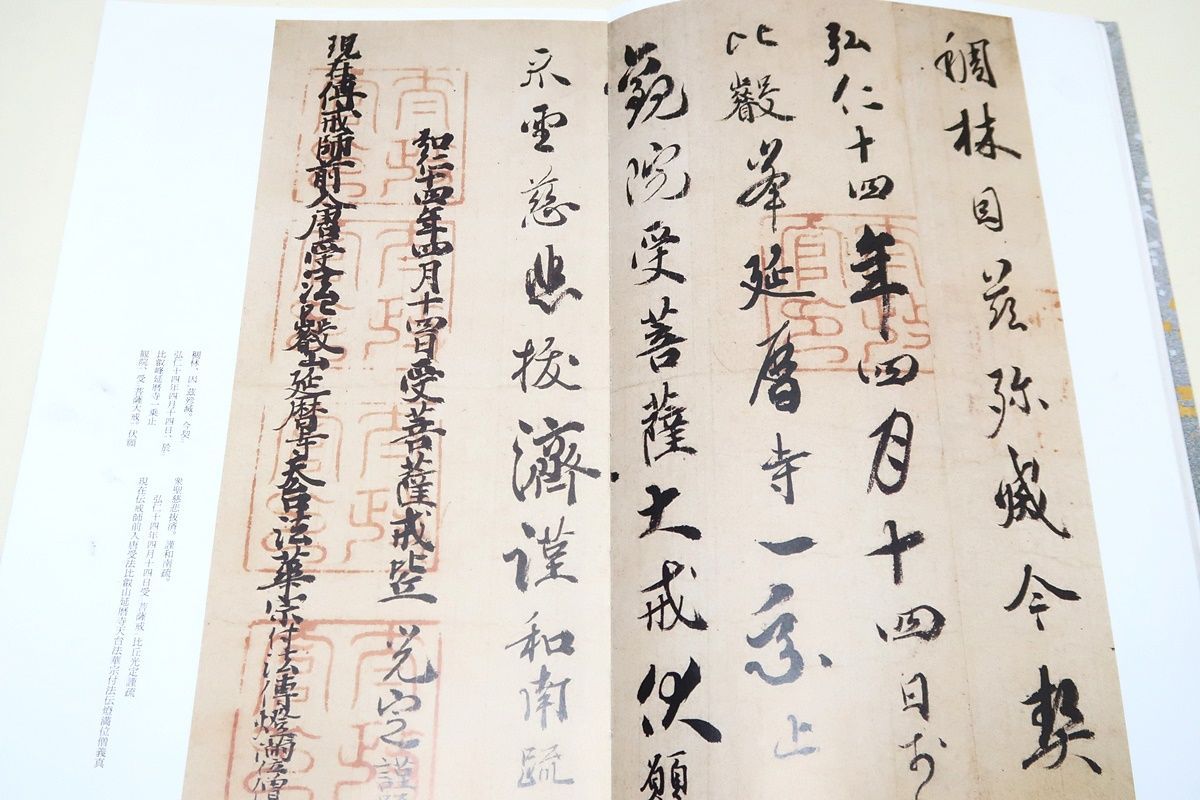 稠林因茲殄滅今契
弘仁十四年四月十四日於
比叡峯延暦寺一乗止
觀院受菩薩大戒伏願
衆聖慈悲抜濟謹和南疏
弘仁十四年四月十四日受菩薩戒比丘光定謹疏
現在傳戒師前入唐受法比叡山延暦寺天台法華宗付法傳燈満位僧
稠林、因茲殄滅。今契、
弘仁十四年四月十四日、於
比叡峰延暦寺一乗止
観院、受菩薩大戒。伏願
衆聖慈悲抜済。謹和南疏。
弘仁十四年四月十四日受菩薩戒 比丘光定謹疏
現在伝戒師前入唐受法比叡山延暦寺天台法華宗付法伝燈満位僧義真